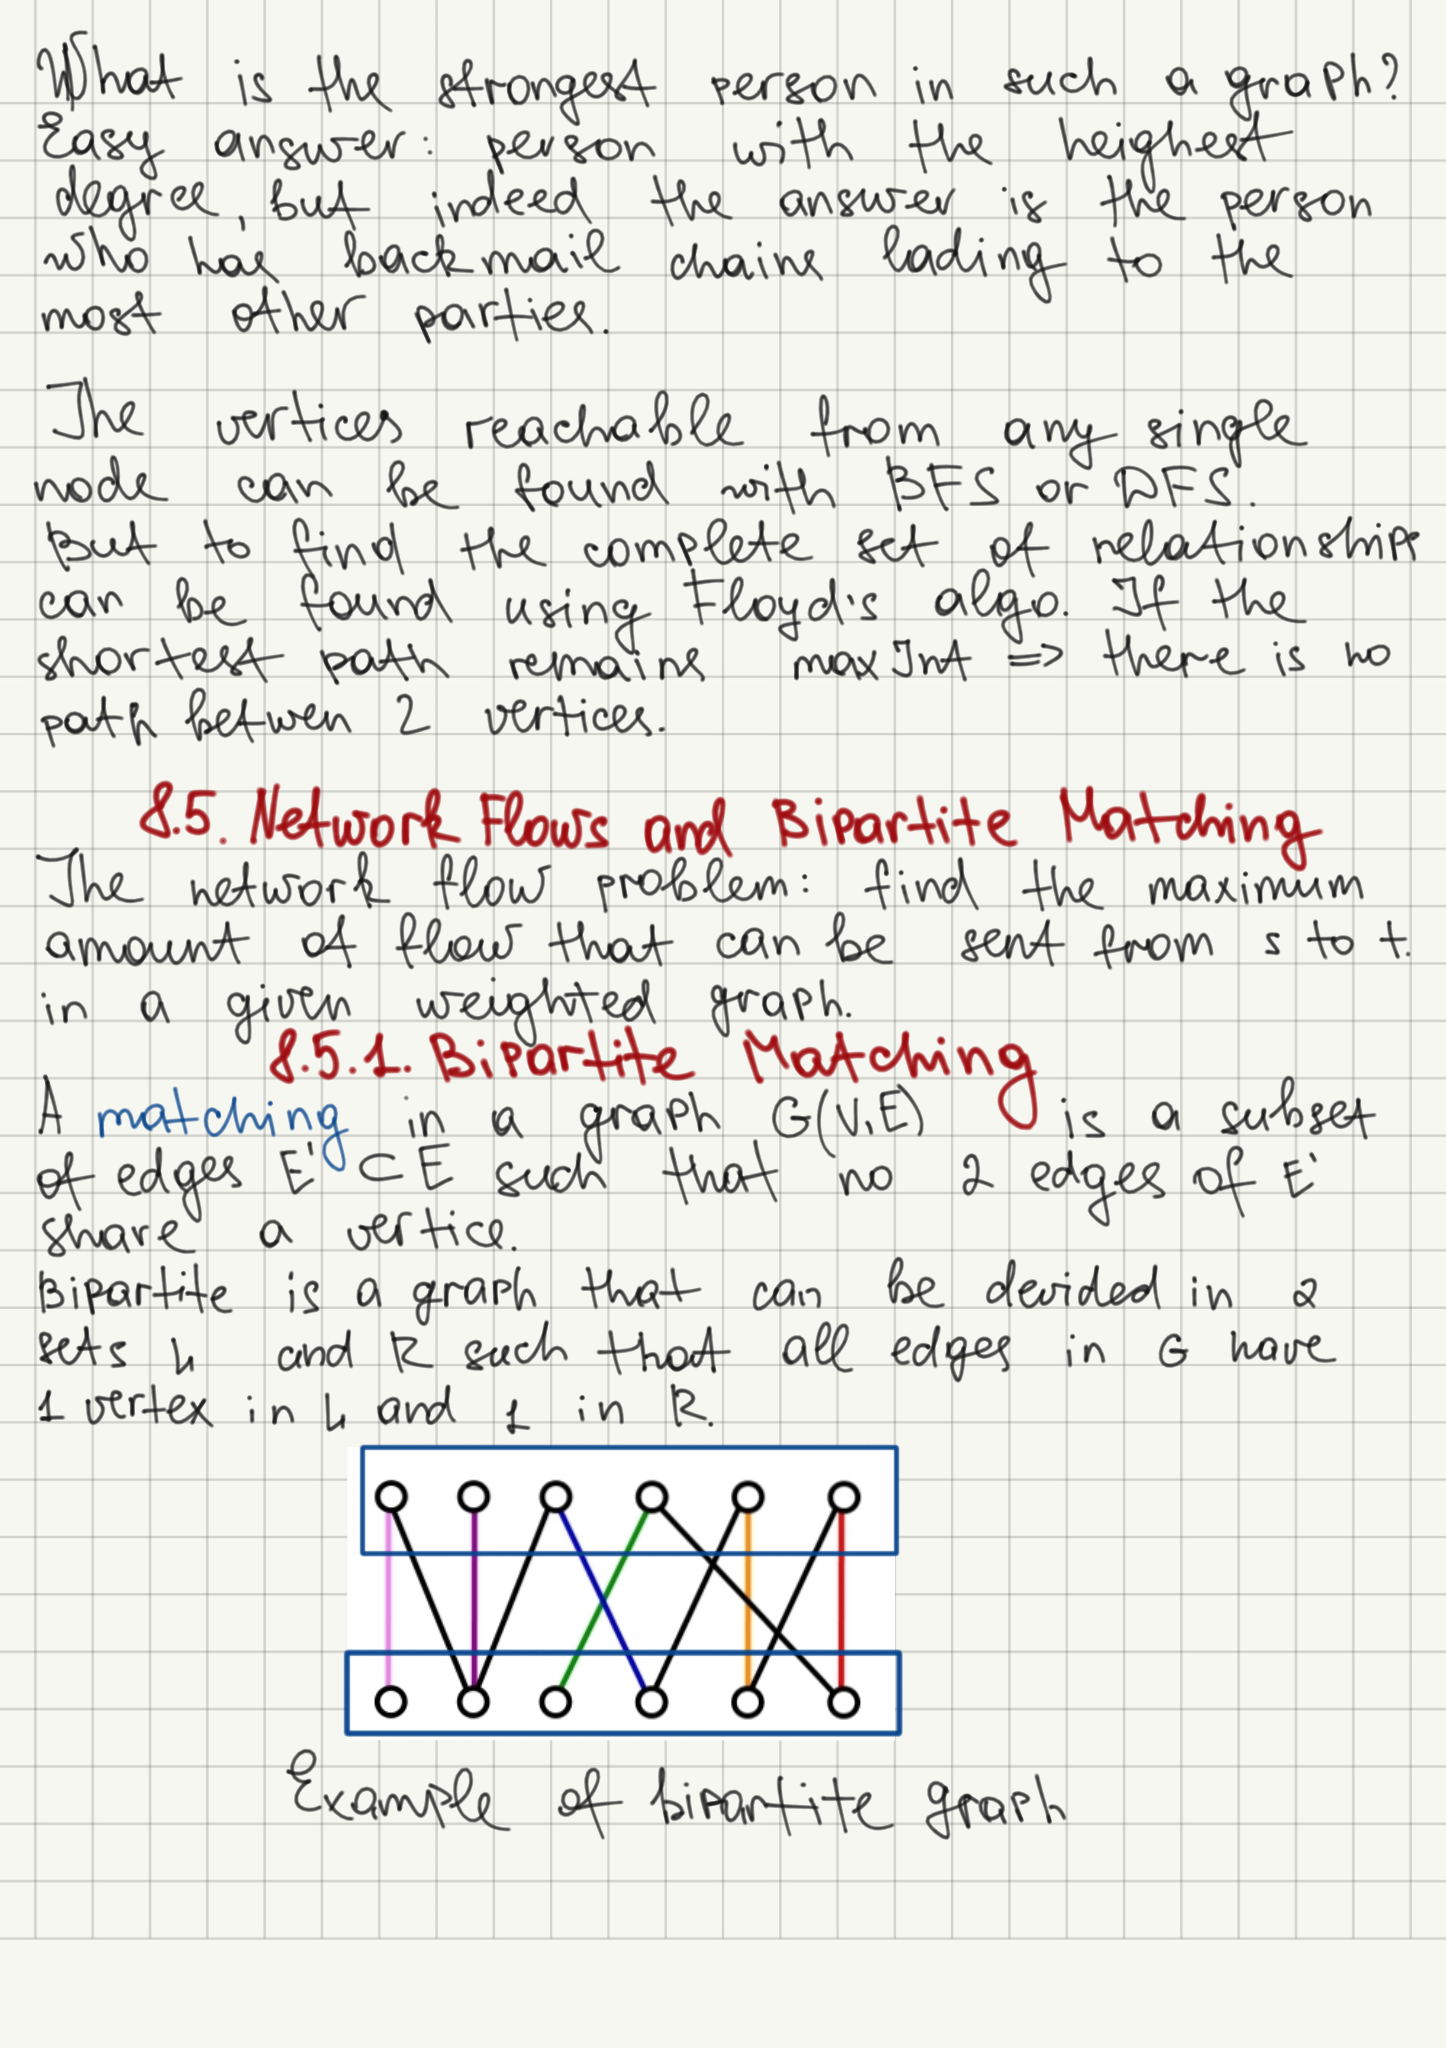 What is the strongest person in such a graph?
Easy answer: person with the heighest
degree, but indeed the answer is the person
who has backmail chains lading to the
most other parties.
The vertices reachable from any single
node can be found with BFS or DFS.
But to find the complete set of relationships
can be found using Floyd's algo. If the
shortest path remains maxInt => there is no
path betwen 2 vertices.
8.5. Network Flows and Bipartite Matching
The network flow problem: find the maximum
amount of flow that can be sent from s to t.
in a given weighted graph.
8.5.1. Bipartite Matching
A matching in a graph G(V,E) is a subset
of edges E' ⊂ E such that no 2 edges of E'
share a vertice.
Bipartite is a graph that can be devided in 2
sets L and R such that all edges in G have
1 vertex in L and 1 in R.
Example of bipartite graph